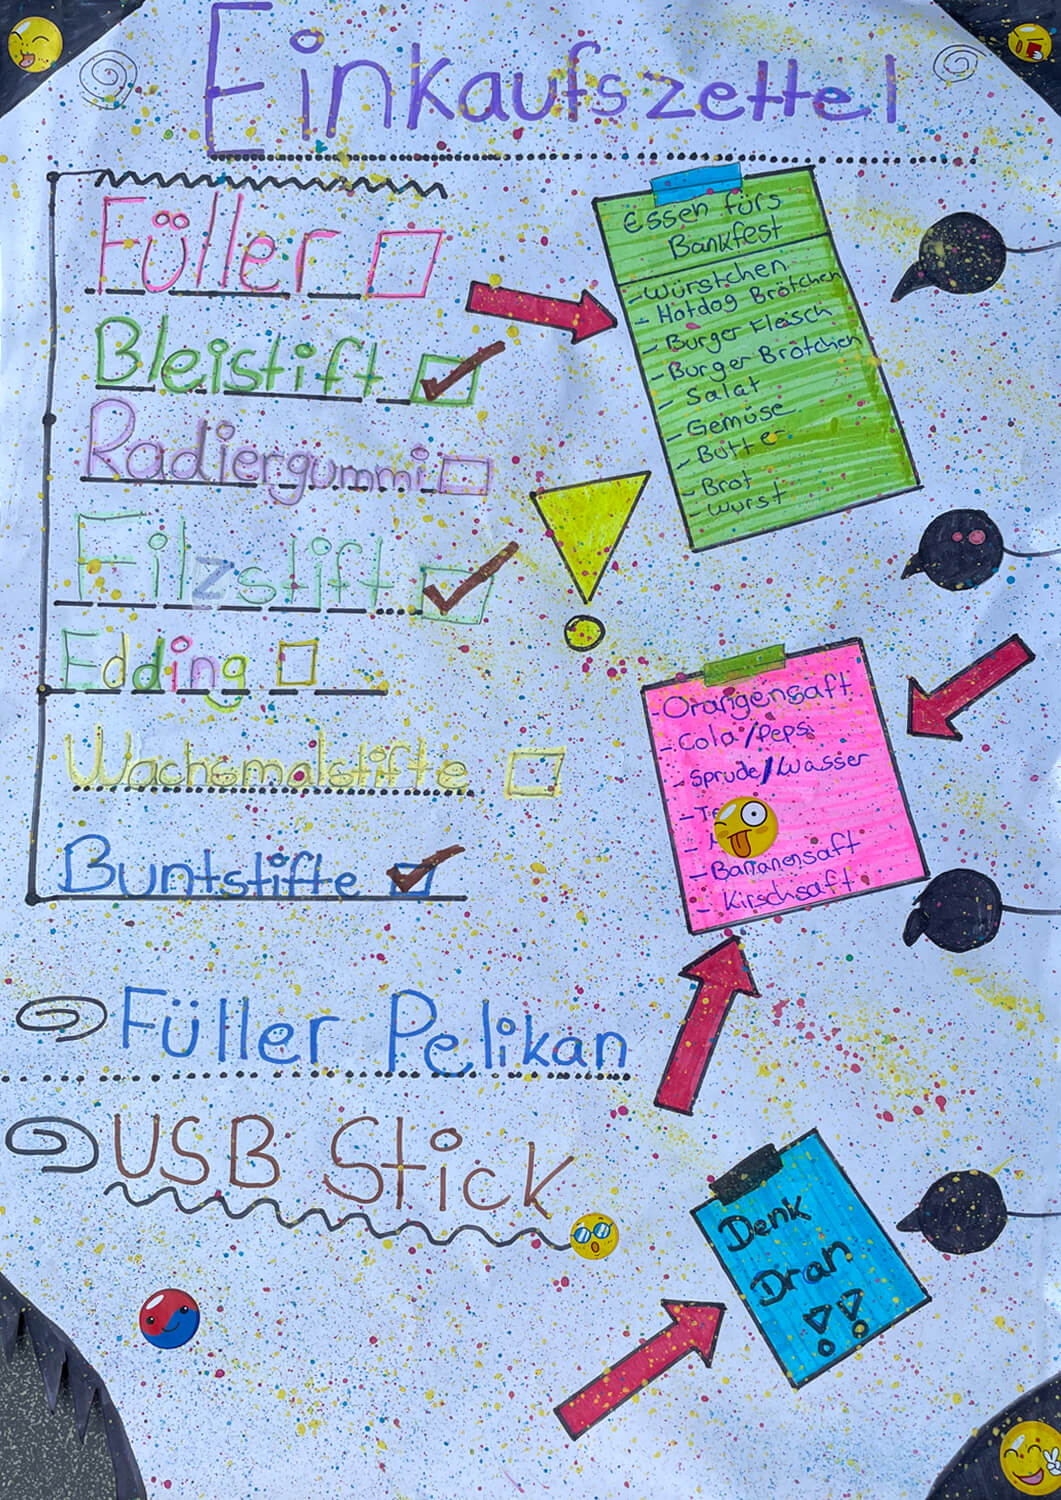 Einkaufszettel
Füller
Bleistift
Radiergummi
Filzstift
Edding
Wachsmalstifte
Buntstifte
Füller Pelikan
USB Stick
Essen fürs
Bankfest
- Würstchen
- Hotdog Brötchen
- Burger Fleisch
- Burger Brötchen
- Salat
- Gemüse
- Butter
- Brot
- Wurst
- Orangensaft
- Cola/Pepsi
- Sprudel/Wasser
- Bananensaft
- Kirschsaft
Denk
Dran
!!